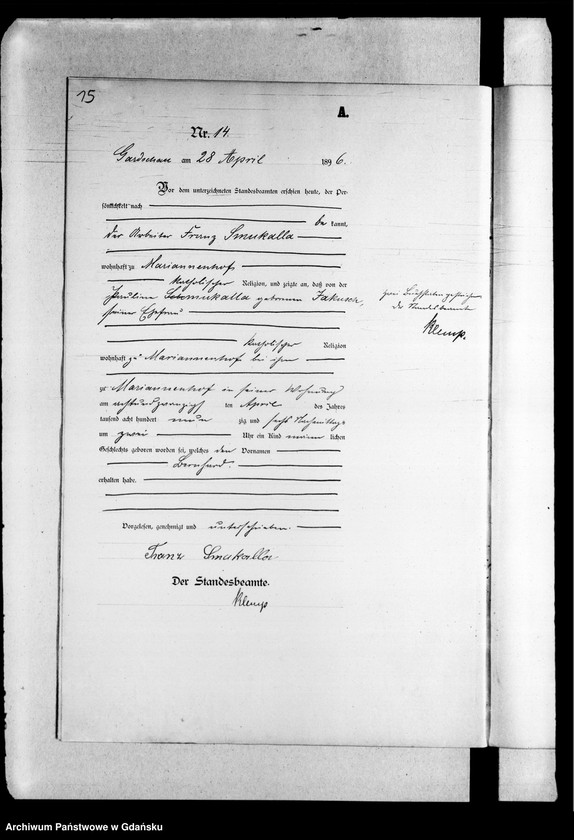 15
A.
Nr. 14.
Gardschau am 28 April 1896.
Vor dem unterzeichneten Standesbeamten erschien heute, der Per-
sönlichkeit nach
be kannt,
der Arbeiter Franz Smukalla
wohnhaft zu Mariannenhof
katholischer Religion, und zeigte an, daß von der
Pauline Smukalla geborenen Jakusch,
seiner Ehefrau
katholischer Religion
wohnhaft zu Mariannenhof bei ihm
zu Mariannenhof in seiner Wohnung
am achtundzwanzigsten April des Jahres
tausend acht hundert neun zig und sechs Nachmittags
um zwei Uhr ein Kind männ lichen
Geschlechts geboren worden sei, welches den Vornamen
Bernhard.
erhalten habe.
Vorgelesen, genehmigt und unterschrieben.
Franz Smukalla
Der Standesbeamte.
Klemp
zwei Buchstaben gestrichen
der Standesbeamte
Klemp.
Archiwum Państwowe w Gdańsku